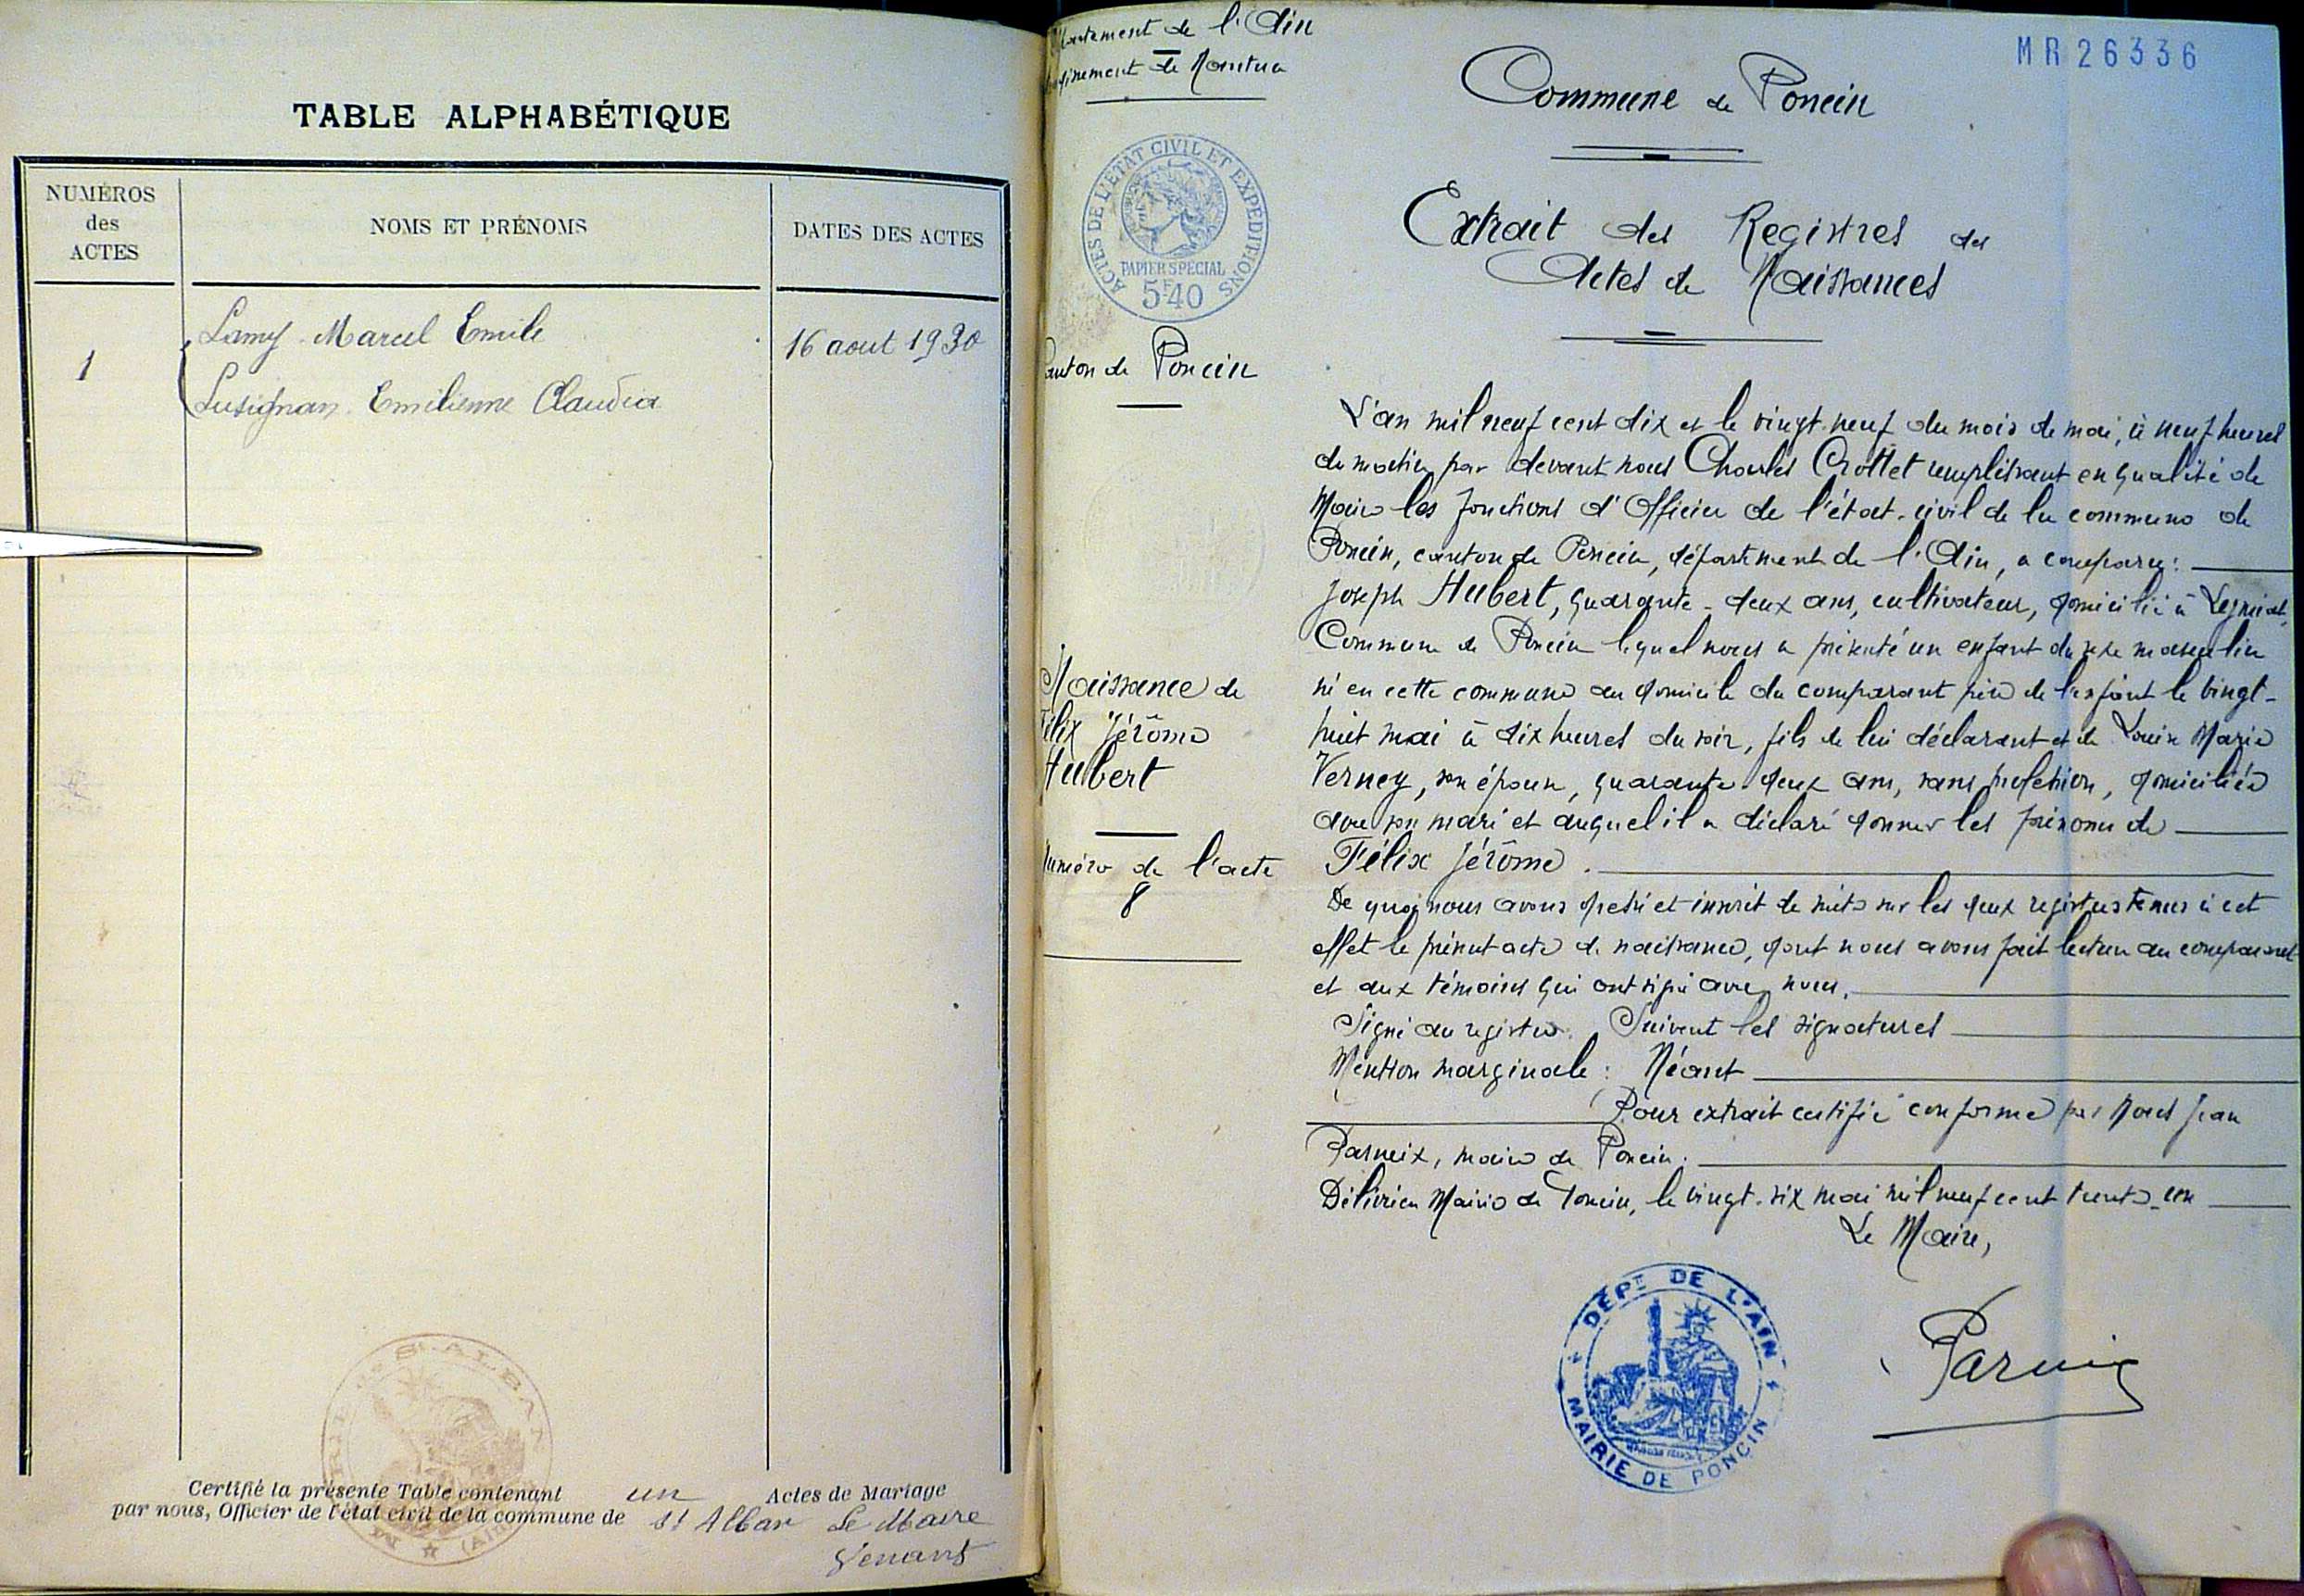 TABLE ALPHABÉTIQUE
NUMÉROS
des
ACTES
NOMS ET PRÉNOMS
DATES DES ACTES
1
Lamy Marcel Emile
Lusignan Emilienne Claudia
16 aout 1930
Certifié la présente Table contenant un Actes de Mariage
par nous, Officier de l'état civil de la commune de St Alban Le Maire
MR 26336
partement de l'Ain
de Nantua
ACTES DE L'ÉTAT CIVIL ET EXPÉDITIONS
PAPIER SPÉCIAL
5F40
anton de Poncin
Naissance de
élix Jérôme
Hubert
uméro de l'acte
8
Commune de Poncin
Extrait des Registres des
Actes de Naissances
L'an mil neuf cent dix et le vingt-neuf du mois de mai, à neuf heures
du matin par devant nous Charles Crottet remplissant en qualité de
Maire les fonctions d'Officier de l'état-civil de la commune de
Poncin, canton de Poncin, département de l'Ain, a comparu:
Joseph Hubert, quarante-deux ans, cultivateur, domicilié à Leymiat,
Commune de Poncin lequel nous a présenté un enfant du sexe masculin
né en cette commune au domicile du comparant père de l'enfant le vingt-
huit mai à dix heures du soir, fils de lui déclarant et de Louise Marie
Verney, son épouse, quarante-deux ans, sans profession, domiciliée
avec son mari et auquel il a déclaré donner les prénoms de
Félix Jérôme.
De quoi nous avons dressé et inscrit de suite sur les deux registres tenus à cet
effet le présent acte de naissance, dont nous avons fait lecture au comparant
et aux témoins qui ont signé avec nous.
Signé au registre. Suivent les signatures
Mention marginale: Néant
Pour extrait certifié conforme par Nous Jean
Parneix, maire de Poncin.
Délivré en Mairie de Poncin, le vingt-six mai mil neuf cent trente-un
Le Maire,
Parneix
DÉPT DE L'AIN
MAIRIE DE PONCIN